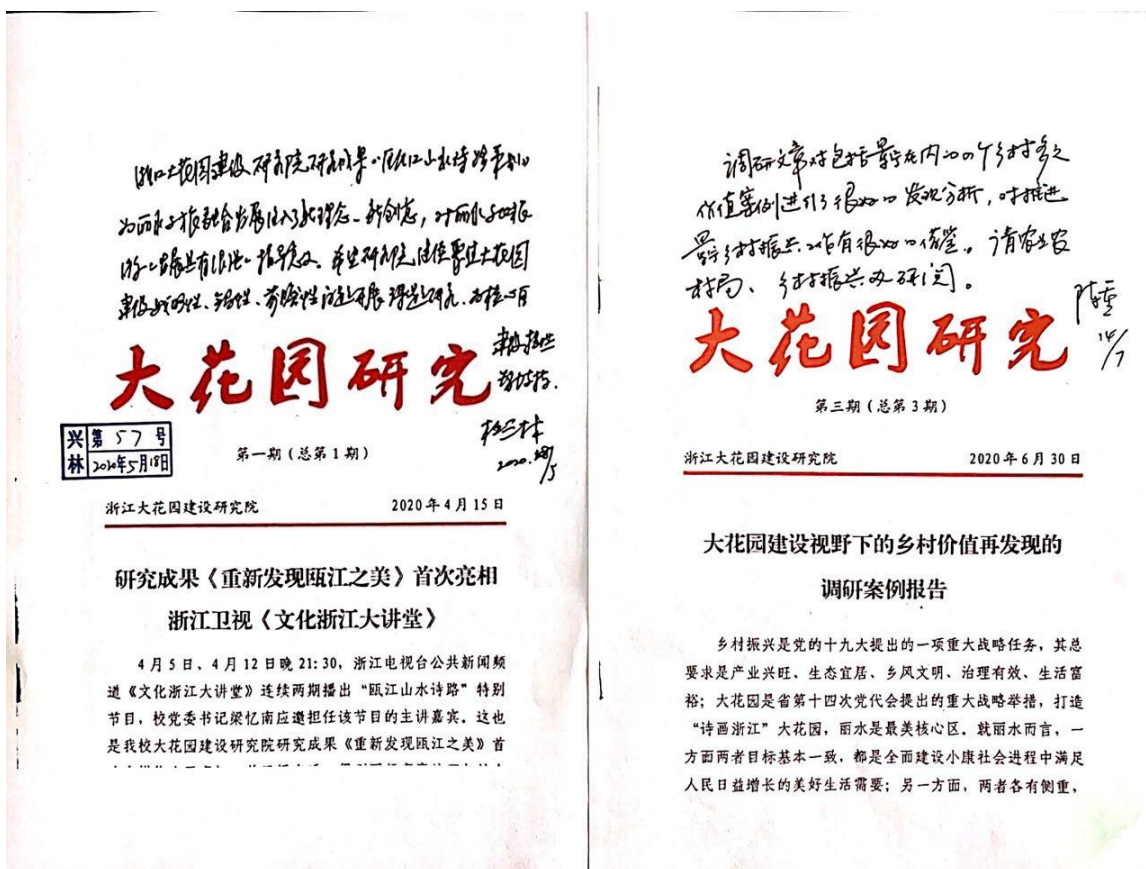 浙江大花园建设研究院研究成果《瓯江山水诗路系列》
为丽水文旅融合发展注入新理念、新创意,对丽水文旅
建设战略性、前瞻性
大花园研究
兴林
第57号
2020年5月18日
第一期(总第1期)
2020.18/5
浙江大花园建设研究院
2020年4月15日
研究成果《重新发现瓯江之美》首次亮相
浙江卫视《文化浙江大讲堂》
4月5日、4月12日晚21:30,浙江电视台公共新闻频
道《文化浙江大讲堂》连续两期播出“瓯江山水诗路”特别
节目,校党委书记梁忆南应邀担任该节目的主讲嘉宾。这也
是我校大花园建设研究院研究成果《重新发现瓯江之美》首
调研文章对包括景宁在内的9个乡村多元
价值案例进行了很好的发现分析,对推进
景宁乡村振兴工作有很好的借鉴。请农业农
村局、乡村振兴办研阅。
14/7
大花园研究
第三期(总第3期)
浙江大花园建设研究院
2020年6月30日
大花园建设视野下的乡村价值再发现的
调研案例报告
乡村振兴是党的十九大提出的一项重大战略任务,其总
要求是产业兴旺、生态宜居、乡风文明、治理有效、生活富
裕;大花园是省第十四次党代会提出的重大战略举措,打造
“诗画浙江”大花园,丽水是最美核心区。就丽水而言,一
方面两者目标基本一致,都是全面建设小康社会进程中满足
人民日益增长的美好生活需要;另一方面,两者各有侧重,